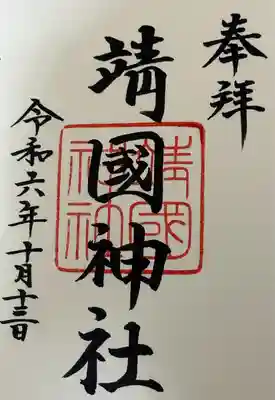 奉拝
靖國神社
靖國神社
令和六年十月十三日